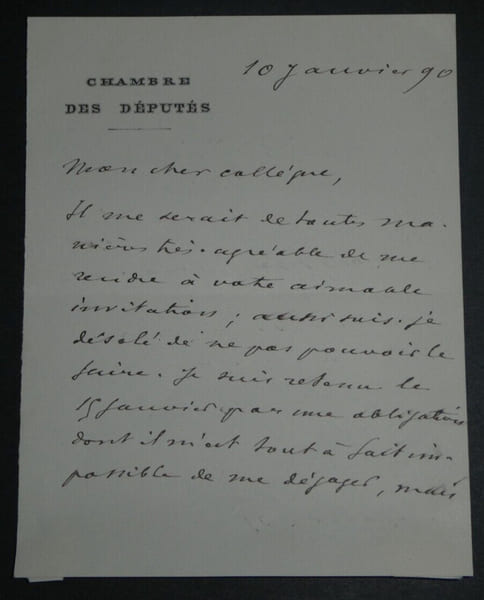 10 Janvier 90
CHAMBRE
DES DÉPUTÉS
Mon cher collégue,
Il me serait de toutes ma-
nières très-agréable de me
rendre à votre aimable
invitation; aussi suis-je
désolé de ne pas pouvoir le
faire. Je suis retenu le
15 Janvier par une obligation
dont il m'est tout à fait im-
possible de me dégager, mais